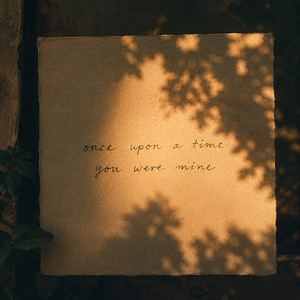 once upon a time
you were mine